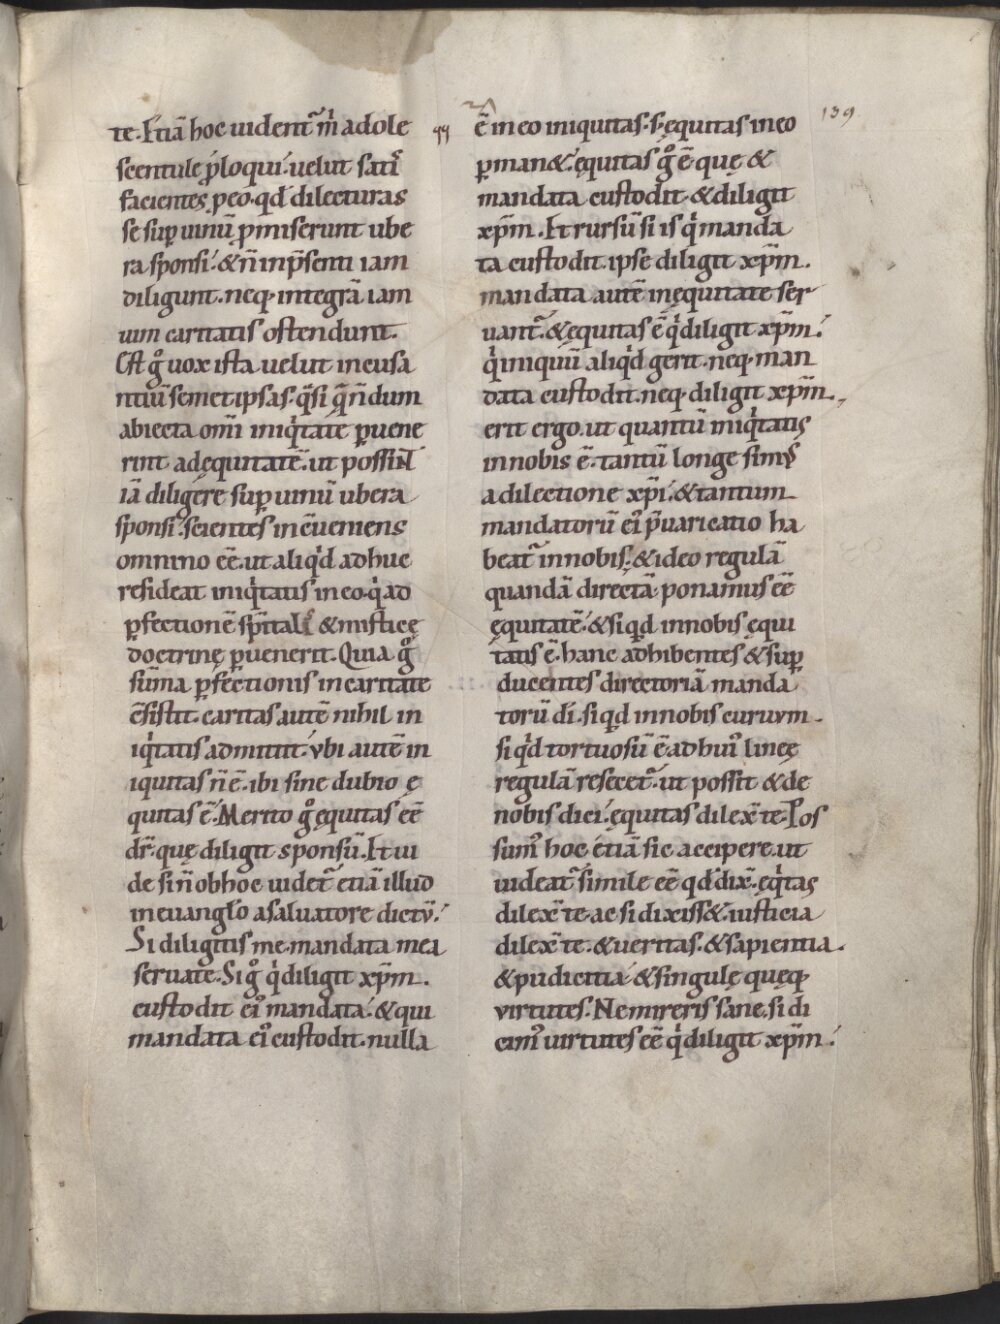 139
te. Etiā hoc uident᷑ m̄ adole
scentule ploqui. uelut satis
facientes ꝓeo. qd̄ dilecturas
se suꝑ uinū ꝓmiserunt ube
ra sponsi. & n̄ inp̄senti iam
diligunt. neq; integrā iam
uim caritatis ostendunt.
Est gͦ uox ista uelut incusa
ntiū semetipsas. qͣsi qͣ n̄dum
abiecta om̄i iniqͥtate ꝑuene
rint adęquitatē. ut possint
iā diligere suꝑ uinū ubera
sponsi. scientes incēueniens
omnino eē. ut aliqͥd adhuc
resideat iniqͥtatis ineo. qͥ ad
ꝑfectionē sp̄ital & misticę
doctrinę ꝑuenerit. Quia gͦ
sūma ꝑfectionis incaritate
c̄sistit. caritas autē nihil in
iqͥtatis admittit. vbi autē in
iquitas n̄ ē. ibi sine dubio ę
quitas ē. Merito gͦ ęquitas eē
dr̄. quę diligit sponsū. Et ui
de si n̄ obhoc uidet᷑ etiā illud
ineuanglo asaluatore dictū.
Si diligitis me. mandata mea
seruate. Si gͦ qͥ diligit xp̄m.
custodit ei᷒ mandata. & qui
mandata ei᷒ custodit. nulla
ē ineo iniquitas. s; ęquitas ineo
ꝑman&. ęquitas gͦ ē quę &
mandata custodit. & diligit
xp̄m. Et rursū si is qͥ manda
ta custodit. ipse diligit xp̄m.
mandata autē inęquitate ser
uant᷑. & ęquitas ē qͥ diligit xp̄m.
qͥ iniquū aliqͥd gerit. neq; man
data custodit. neq; diligit xp̄m.
erit ergo. ut quantū iniqͥtatis
innobis ē. tantū longe simus
adilectione xp̄i. & tantum
mandatorū ei᷒ p̄uaricatio ha
beat᷑ innobis. & ideo regulā
quandā directā ponamus eē
ęquitatē. & siqͥd innobis ęqui
tatis ē. hanc adhibentes & suꝑ
ducentes directoriā manda
torū di. siqͥd innobis curuum.
siqͥd tortuosū ē. adhui᷒ lineę
regulā resecet᷑. ut possit & de
nobis dici. ęquitas dilex̄ te. Pos
sum᷒ hoc etiā sic accipere. ut
uideat᷑ simile eē qd̄ dix̄. ęqͥtas
dilex̄ te. ac si dixiss&. iusticia
dilex̄ te. & ueritas. & sapientia.
& pudicitia. & singulę quęq;
virtutes. Nemireris sane. si di
cim᷒ uirtutes eē qͥ diligit xp̄m.